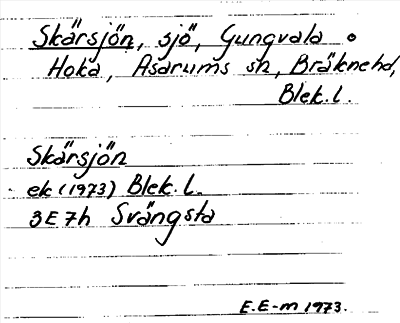 Skärsjön, sjö, Gungvala o
Hoka, Asarums sn, Bräknehd,
Blek. l.
Skärsjön
ek (1973) Blek. L.
3E7h Svängsta
E.E-m 1973.